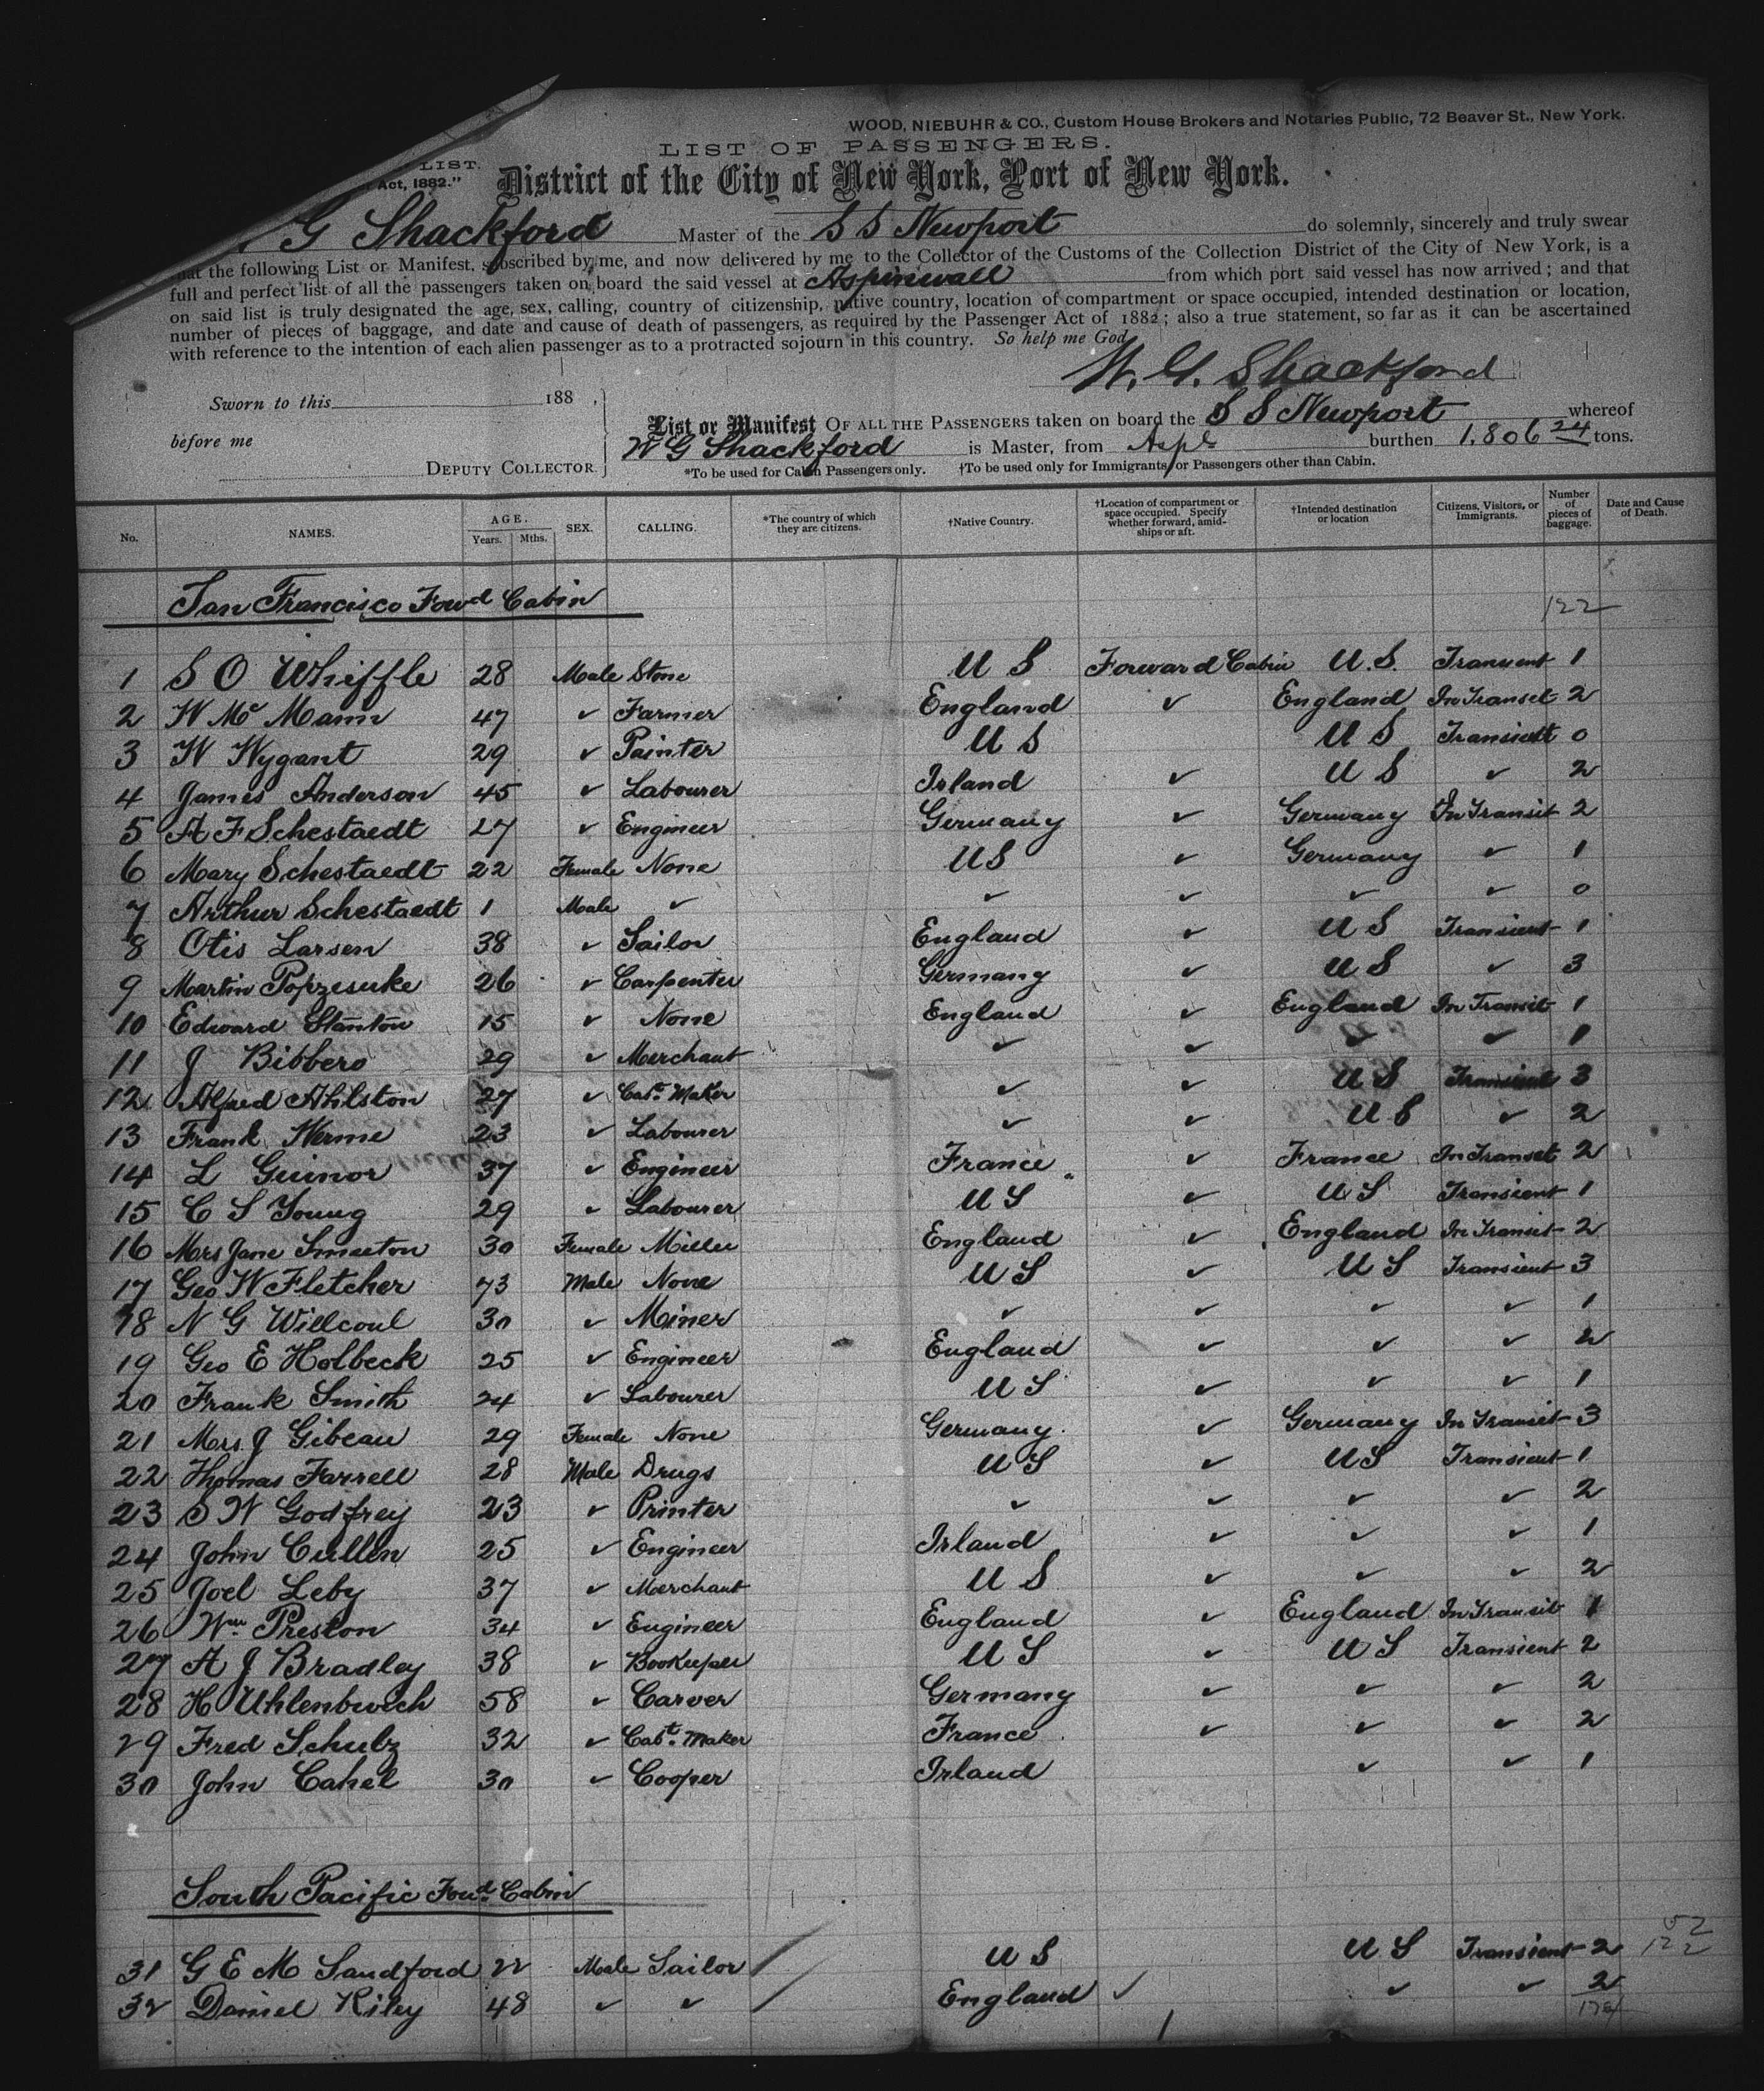 WOOD, NIEBUHR & CO., Custom House Brokers and Notaries Public, 72 Beaver St., New York.
LIST OF PASSENGERS.
LIST.
Act, 1882."
District of the City of New York, Port of New York.
G Shackford Master of the S S Newport do solemnly, sincerely and truly swear
that the following List or Manifest, subscribed by me, and now delivered by me to the Collector of the Customs of the Collection District of the City of New York, is a
full and perfect list of all the passengers taken on board the said vessel at Aspinwall from which port said vessel has now arrived; and that
on said list is truly designated the age, sex, calling, country of citizenship, native country, location of compartment or space occupied, intended destination or location,
number of pieces of baggage, and date and cause of death of passengers, as required by the Passenger Act of 1882; also a true statement, so far as it can be ascertained
with reference to the intention of each alien passenger as to a protracted sojourn in this country. So help me God
W. G. Shackford
Sworn to this 188 ,
before me
DEPUTY COLLECTOR.
List or Manifest OF ALL THE PASSENGERS taken on board the S S Newport whereof
W G Shackford is Master, from Aspl burthen 1.806 24 tons.
*To be used for Cabin Passengers only. †To be used only for Immigrants, or Passengers other than Cabin.
No. NAMES. AGE. Years. Mths. SEX. CALLING. *The country of which they are citizens. †Native Country. †Location of compartment or space occupied. Specify whether forward, amidships or aft. †Intended destination or location Citizens, Visitors, or Immigrants. Number of pieces of baggage. Date and Cause of Death.
San Francisco Fowd Cabin 122
1 S O Whiffle 28 Male Stone U S Forward Cabin U.S. Transient 1
2 W Mc Mann 47 ✓ Farmer England ✓ England In Transit 2
3 W Wygant 29 ✓ Painter U S U S Transient 0
4 James Anderson 45 ✓ Labourer Irland ✓ U S ✓ 2
5 A F Schestaedt 27 ✓ Engineer Germany ✓ Germany In Transit 2
6 Mary Schestaedt 22 Female None U S ✓ Germany ✓ 1
7 Arthur Schestaedt 1 Male ✓ ✓ ✓ ✓ ✓ 0
8 Otis Larsen 38 ✓ Sailor England ✓ U S Transient 1
9 Martin Popzesuke 26 ✓ Carpenter Germany ✓ U S ✓ 3
10 Edward Stanton 15 ✓ None England ✓ England In Transit 1
11 J Bibbero 29 ✓ Merchant ✓ ✓ ✓ ✓ 1
12 Alfred Ahlston 27 ✓ Cabt Maker ✓ ✓ U S Transient 3
13 Frank Werme 23 ✓ Labourer ✓ ✓ U S ✓ 2
14 L Guinor 37 ✓ Engineer France ✓ France In Transit 2
15 C S Young 29 ✓ Labourer U S ✓ U S Transient 1
16 Mrs Jane Smeeton 30 Female Miller England ✓ England In Transit 2
17 Geo W Fletcher 73 Male None U S ✓ U S Transient 3
18 N G Willcoul 30 ✓ Miner ✓ ✓ ✓ ✓ 1
19 Geo E Holbeck 25 ✓ Engineer England ✓ ✓ ✓ 2
20 Frank Smith 24 ✓ Labourer U S ✓ ✓ ✓ 1
21 Mrs J Gibeau 29 Female None Germany ✓ Germany In Transit 3
22 Thomas Farrell 28 Male Drugs U S ✓ U S Transient 1
23 S W Godfrey 23 ✓ Printer ✓ ✓ ✓ ✓ 2
24 John Cullen 25 ✓ Engineer Irland ✓ ✓ ✓ 1
25 Joel Leby 37 ✓ Merchant U S ✓ ✓ ✓ 2
26 Wm Preston 34 ✓ Engineer England ✓ England In Transit 1
27 A J Bradley 38 ✓ Bookeeper U S ✓ U S Transient 2
28 H Uhlenbwech 58 ✓ Carver Germany ✓ ✓ ✓ 2
29 Fred Schulz 32 ✓ Cabt Maker France ✓ ✓ ✓ 2
30 John Cahel 30 ✓ Cooper Irland ✓ ✓ 1
South Pacific Fowd Cabin
31 G E M Sandford 22 Male Sailor U S U S Transient 2 122
32 Daniel Riley 48 ✓ ✓ England ✓ ✓ ✓ 2